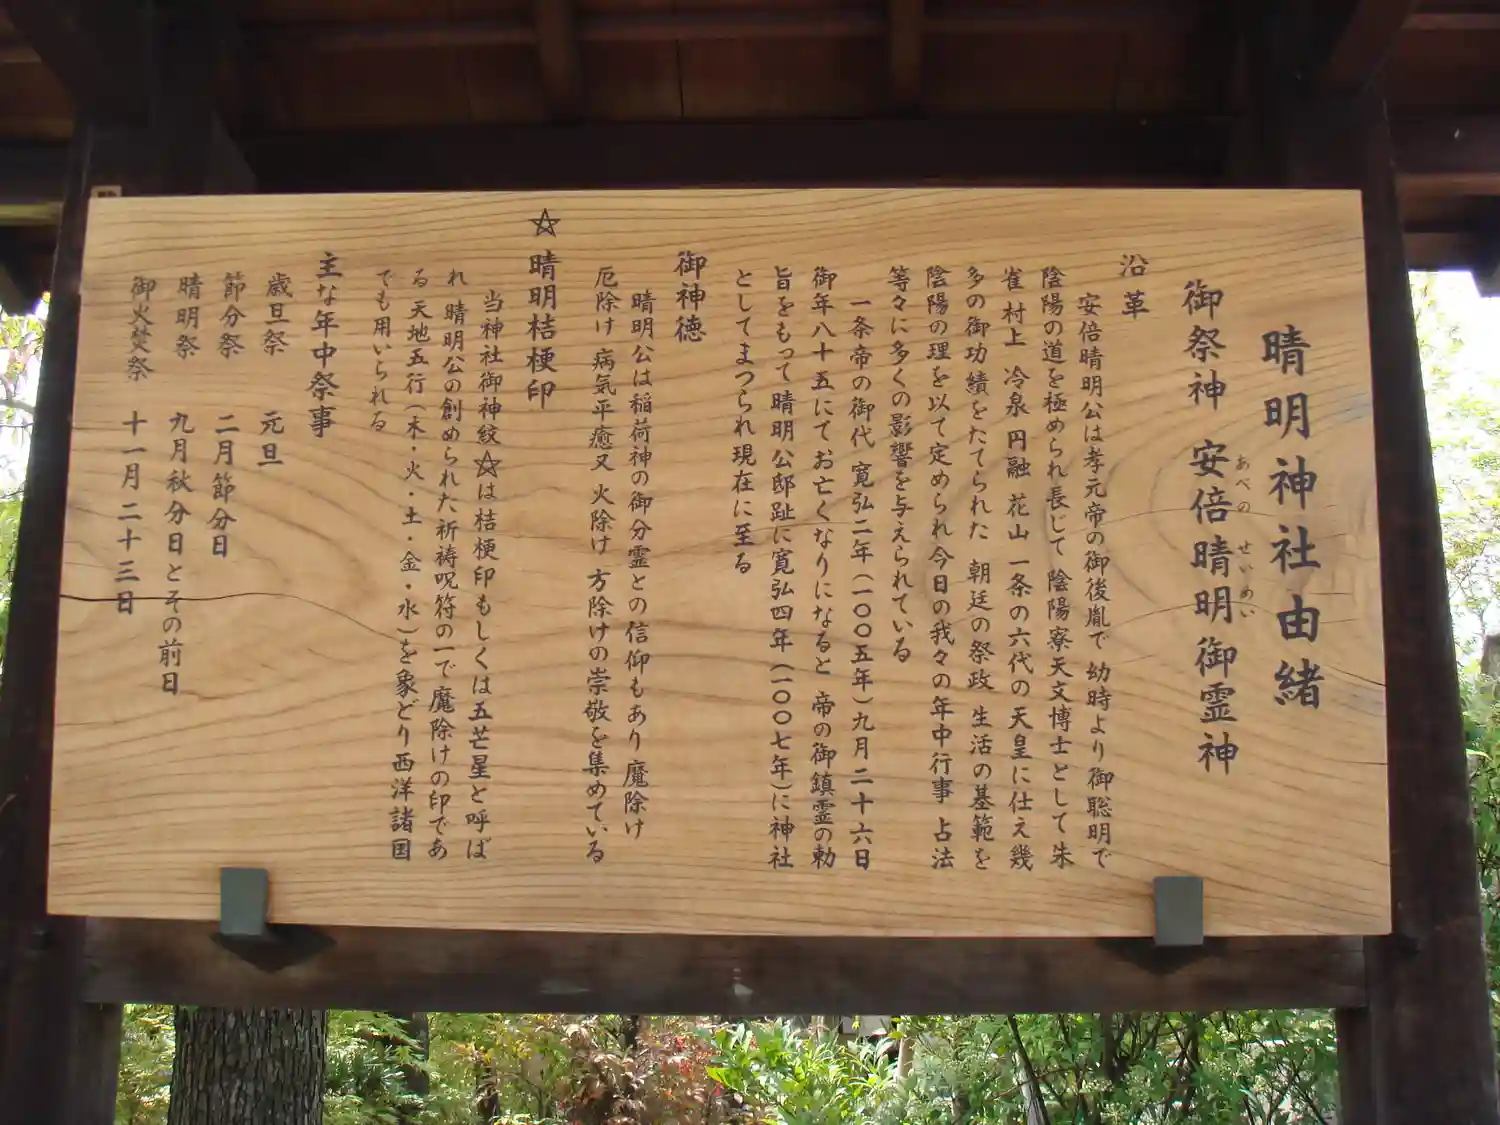 晴明神社由緒
御祭神 安倍晴明御霊神
あべの せいめい
沿革
安倍晴明公は孝元帝の御後胤で 幼時より御聡明で
陰陽の道を極められ長じて 陰陽寮天文博士として朱
雀 村上 冷泉 円融 花山 一条の六代の天皇に仕え幾
多の御功績をたてられた 朝廷の祭政 生活の基範を
陰陽の理を以て定められ今日の我々の年中行事 占法
等々に多くの影響を与えられている
一条帝の御代 寛弘二年(一〇〇五年)九月二十六日
御年八十五にてお亡くなりになると 帝の御鎮霊の勅
旨をもって晴明公邸趾に寛弘四年(一〇〇七年)に神社
としてまつられ現在に至る
御神徳
晴明公は稲荷神の御分霊との信仰もあり魔除け
厄除け 病気平癒又 火除け 方除けの崇敬を集めている
☆ 晴明桔梗印
当神社御神紋☆は桔梗印もしくは五芒星と呼ば
れ 晴明公の創められた祈祷呪符の一で魔除けの印であ
る 天地五行(木・火・土・金・水)を象どり西洋諸国
でも用いられる
主な年中祭事
歳旦祭 元旦
節分祭 二月節分日
晴明祭 九月秋分日とその前日
御火焚祭 十一月二十三日